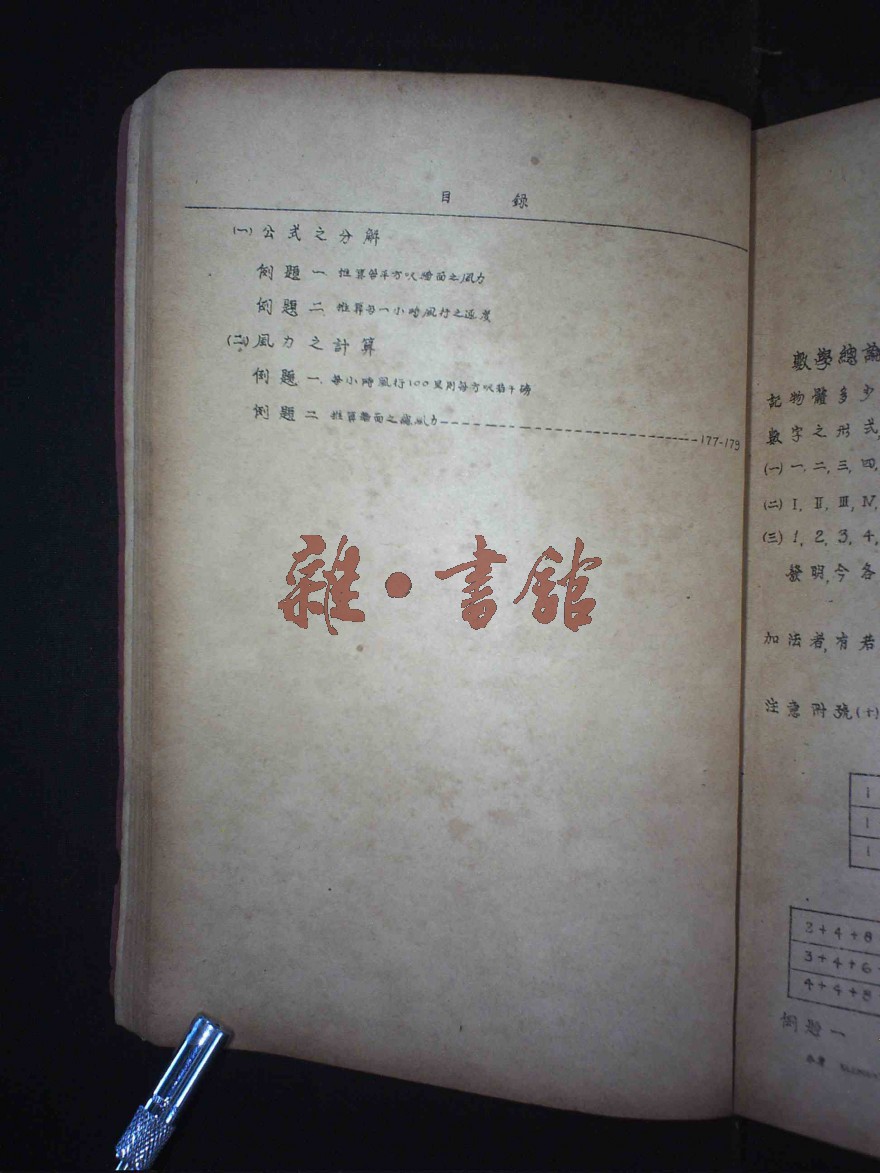 目 錄
(一)公式之分解
例題一 推算每平方呎牆面之風力
例題二 推算每一小時風行之速度
(二)風力之計算
例題一 每小時風行100里則每方呎若干磅
例題二 推算牆面之總風力 177-179
雜·書館
數學總論
記物體多少
數字之形式,
(一)一,二,三,四,
(二)I, II, III, IV,
(三)1, 2, 3, 4,
發明,今各
加法者,有若
注意附號(十)
1
1
1
2+4+8
3+4+6
4+4+8
例題一